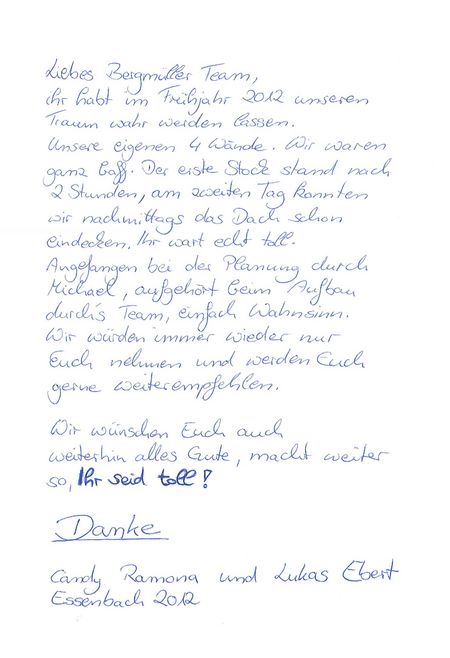 Liebes Bergmüller Team,
ihr habt im Frühjahr 2012 unseren
Traum wahr werden lassen.
Unsere eigenen 4 Wände. Wir waren
ganz baff. Der erste Stock stand nach
2 Stunden, am zweiten Tag konnten
wir nachmittags das Dach schon
eindecken. Ihr wart echt toll.
Angefangen bei der Planung durch
Michael, aufgehört beim Aufbau
durch's Team, einfach Wahnsinn.
Wir würden immer wieder nur
Euch nehmen und werden Euch
gerne weiterempfehlen.
Wir wünschen Euch auch
weiterhin alles Gute, macht weiter
so, Ihr seid toll!
Danke
Candy Ramona und Lukas Ebert
Essenbach 2012